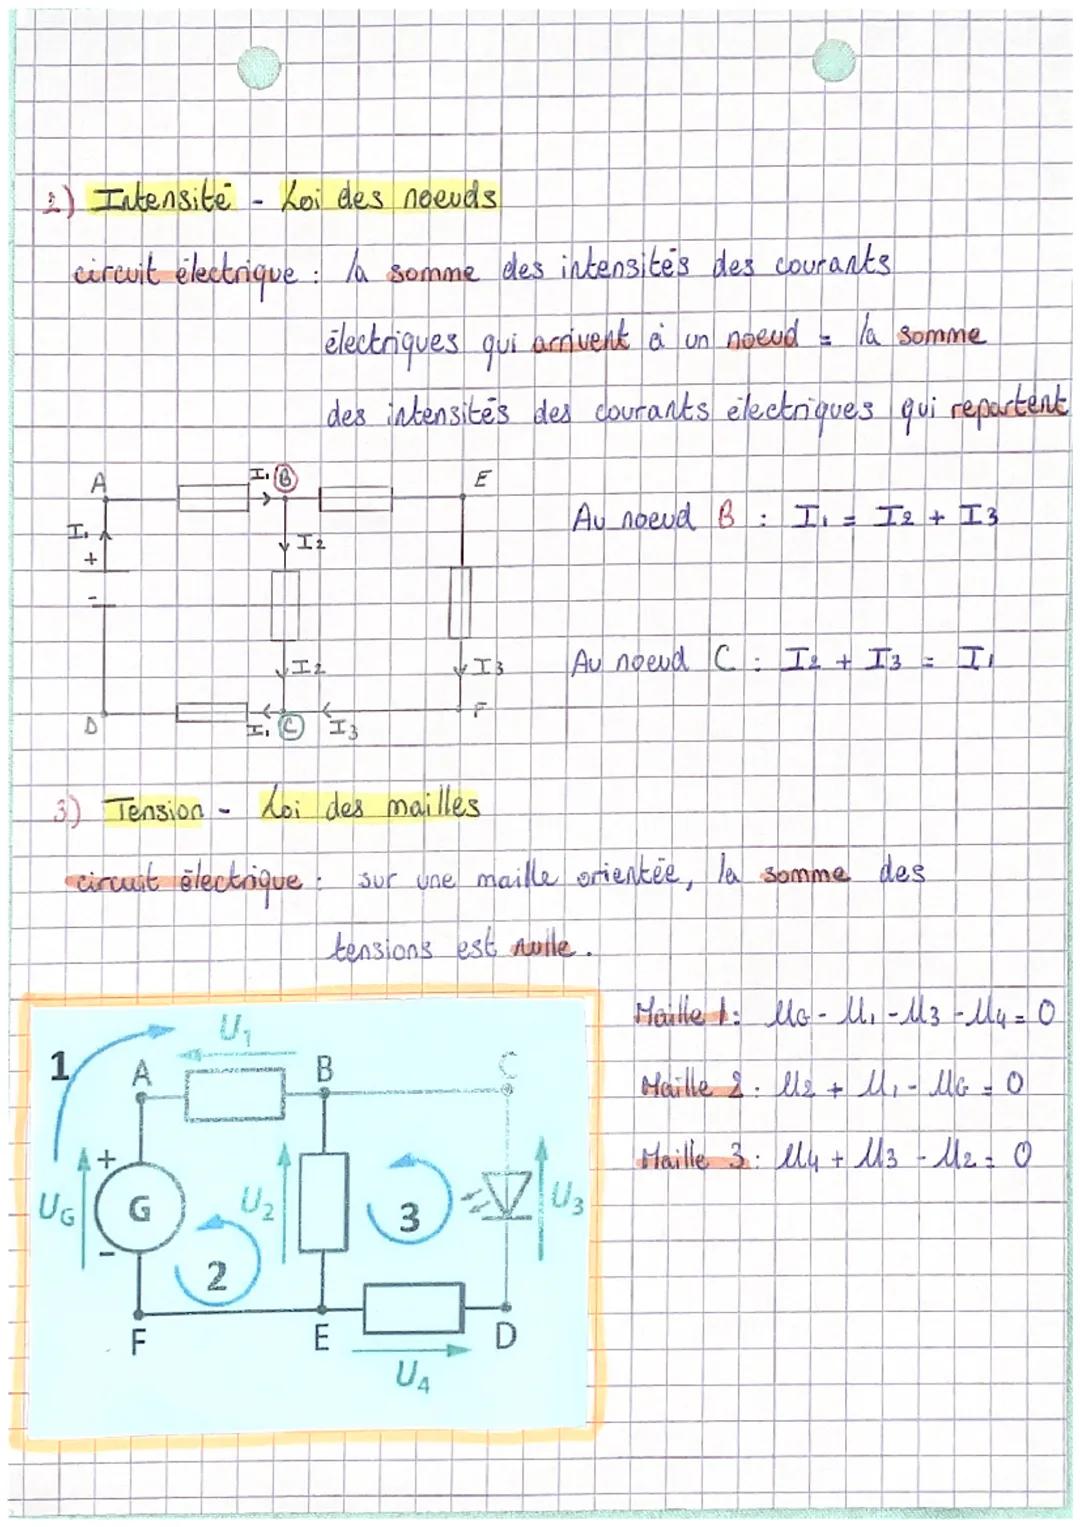 2) Intensité - Loi des noeuds
circuit électrique : la somme des intensités des courants
électriques qui arrivent à un noeud = la somme
des intensités des courants électriques qui repartent
A I₁ B E
I₁ + - I2
Au noeud B : I₁ = I2 + I3
I2 I3
Au noeud C : I2 + I3 = I₁
D I₁ C I3 F
3) Tension - Loi des mailles
circuit électrique : sur une maille orientée, la somme des
tensions est nulle.
Maille 1 : UG - U₁ - U3 - U4 = 0
Maille 2 : U2 + U₁ - UG = 0
Maille 3 : U4 + U3 - U2 = 0
1 A U₁ B C
UG + G - U2 3 U3
2
F E D
U4